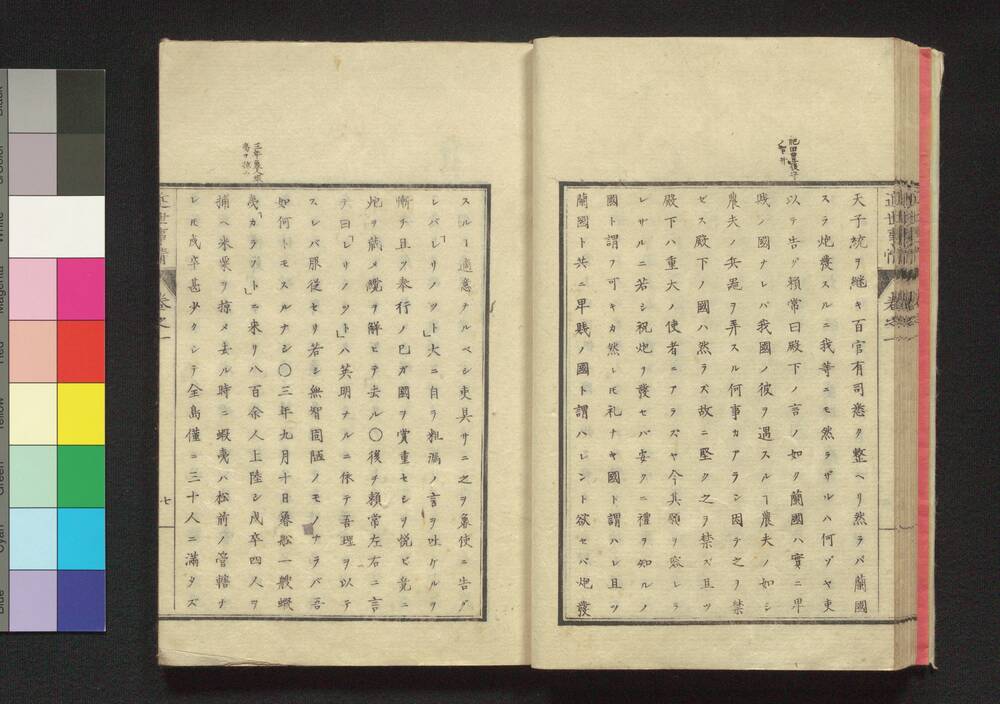 肥田豊後守
ノ奇計
天子統ヲ継キ百官有司悉ク整ヘリ然ラバ蘭國
スラ炮發スルニ我等ニモ然ラザルハ何ゾヤ吏
以テ告グ頼常曰殿下ノ言ノ如ク蘭國ハ實ニ卑
賎ノ國ナレバ我國ノ彼ヲ遇スルヿ農夫ノ如シ
農夫ノ兵器ヲ弄スル何事カアラン因テ之ヲ禁
ゼス殿下ノ國ハ然ラズ故ニ堅ク之ヲ禁ズ且ツ
殿下ハ重大ノ使者ニアラズヤ今其願ヲ容レラ
レザルニ若シ祝炮ヲ發セバ安クニ禮ヲ知ルノ
國ト謂フ可キカ然レ𪜈礼ナキ國ト謂ハレ且ツ
蘭國ト共ニ卑賎ノ國ト謂ハレント欲セバ炮發
スルヿ適意ナルベシ吏具サニ之ヲ魯使ニ告グ
レバ「レリノット」大ニ自ラ粗漏ノ言ヲ吐ケルヲ
慚ヂ且ツ奉行ノ己ガ國ヲ賞重セシヲ悦ビ竟ニ
炮ヲ蔵メ纜ヲ解ヒテ去ル〇後チ頼常左右ニ言
テ曰「レリノット」ハ英明ナルニ依テ吾理ヲ以テ
スレバ服從セリ若シ無智固陋ノモノナラバ吾
如何トモスルナシ〇三年九月十日魯舩一艘蝦
夷「カラフト」ニ来リ八百余人上陸シ戍卒四人ヲ
捕ヘ米粟ヲ掠メ去ル時ニ蝦夷ハ松前ノ管轄ナ
レ𪜈戍卒甚少クシテ全島僅ニ三十人ニ滿タズ
近世事情
卷之一
七